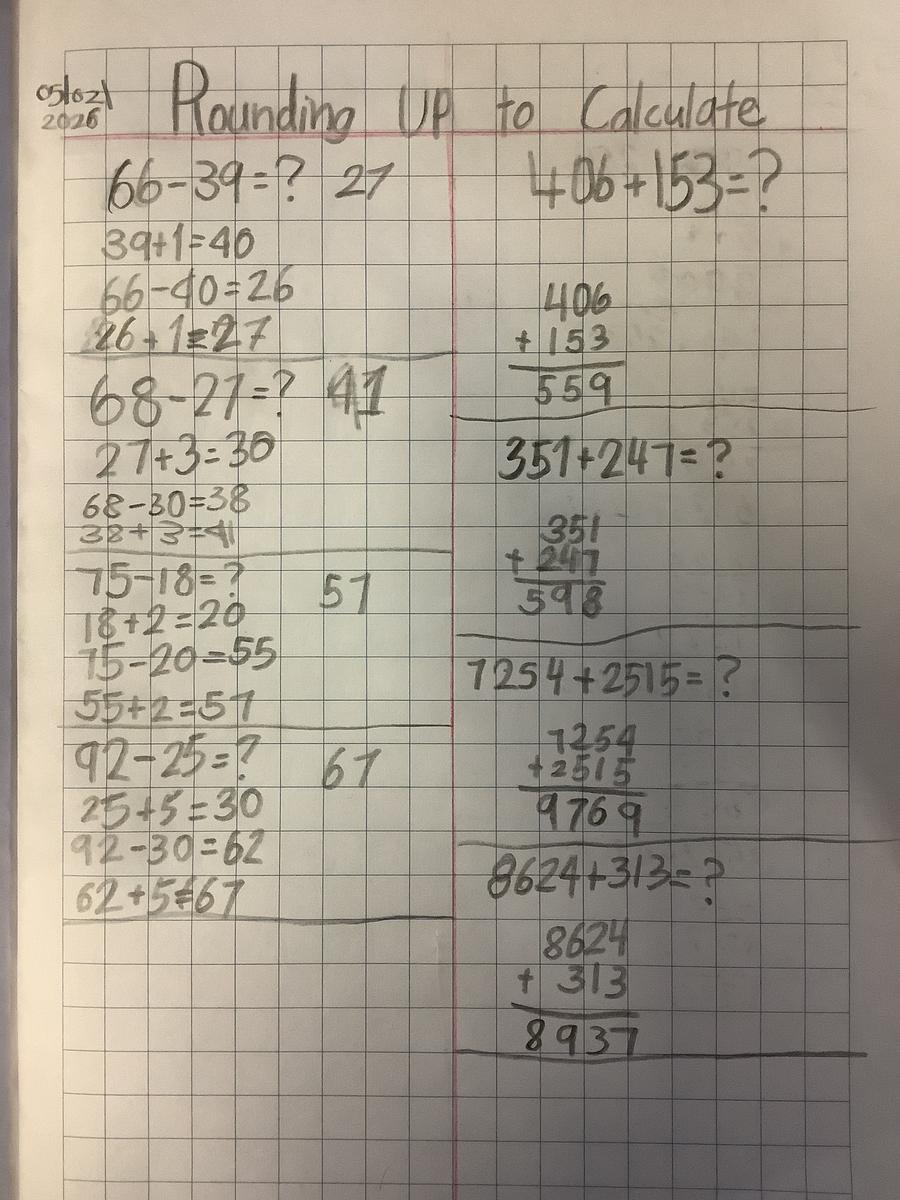 05/02/
2026
Rounding Up to Calculate
66-39=? 27
39+1=40
66-40=26
26+1=27
68-27=? 41
27+3=30
68-30=38
38+3=41
75-18=? 57
18+2=20
75-20=55
55+2=57
92-25=? 67
25+5=30
92-30=62
62+5=67
406+153=?
406
+ 153
559
351+247=?
351
+ 247
598
7254+2515=?
7254
+2515
9769
8624+313=?
8624
+ 313
8937